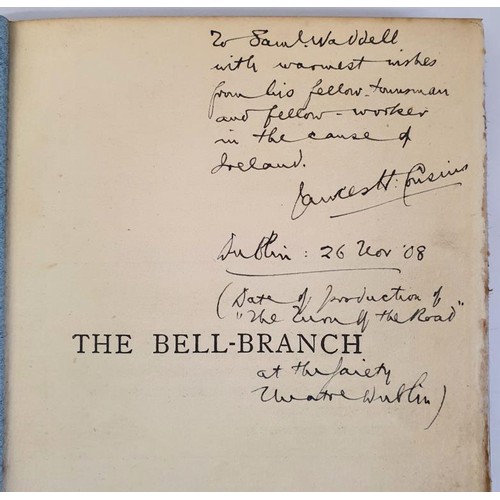 To Saml. Waddell
with warmest wishes
from his fellow-townsman
and fellow-worker
in the cause of
Ireland.
James H. Cousins
Dublin: 26 Nov '08
(Date of production of
"The Turn of the Road"
THE BELL-BRANCH
at the Gaiety
Theatre Dublin)